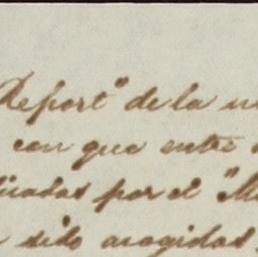 Report" de la
con que entre
por el "M
sido acogidas